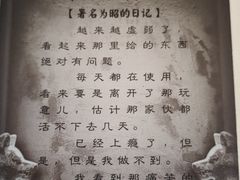 【署名为昭的日记】
越来越虚弱了，
看起来那里给的东西
绝对有问题。
每天都在使用，
看来要是离开了那玩
意儿，估计那家伙都
活不下去几天。
已经上瘾了，但
是，但是我做不到。
我看到那痛苦的